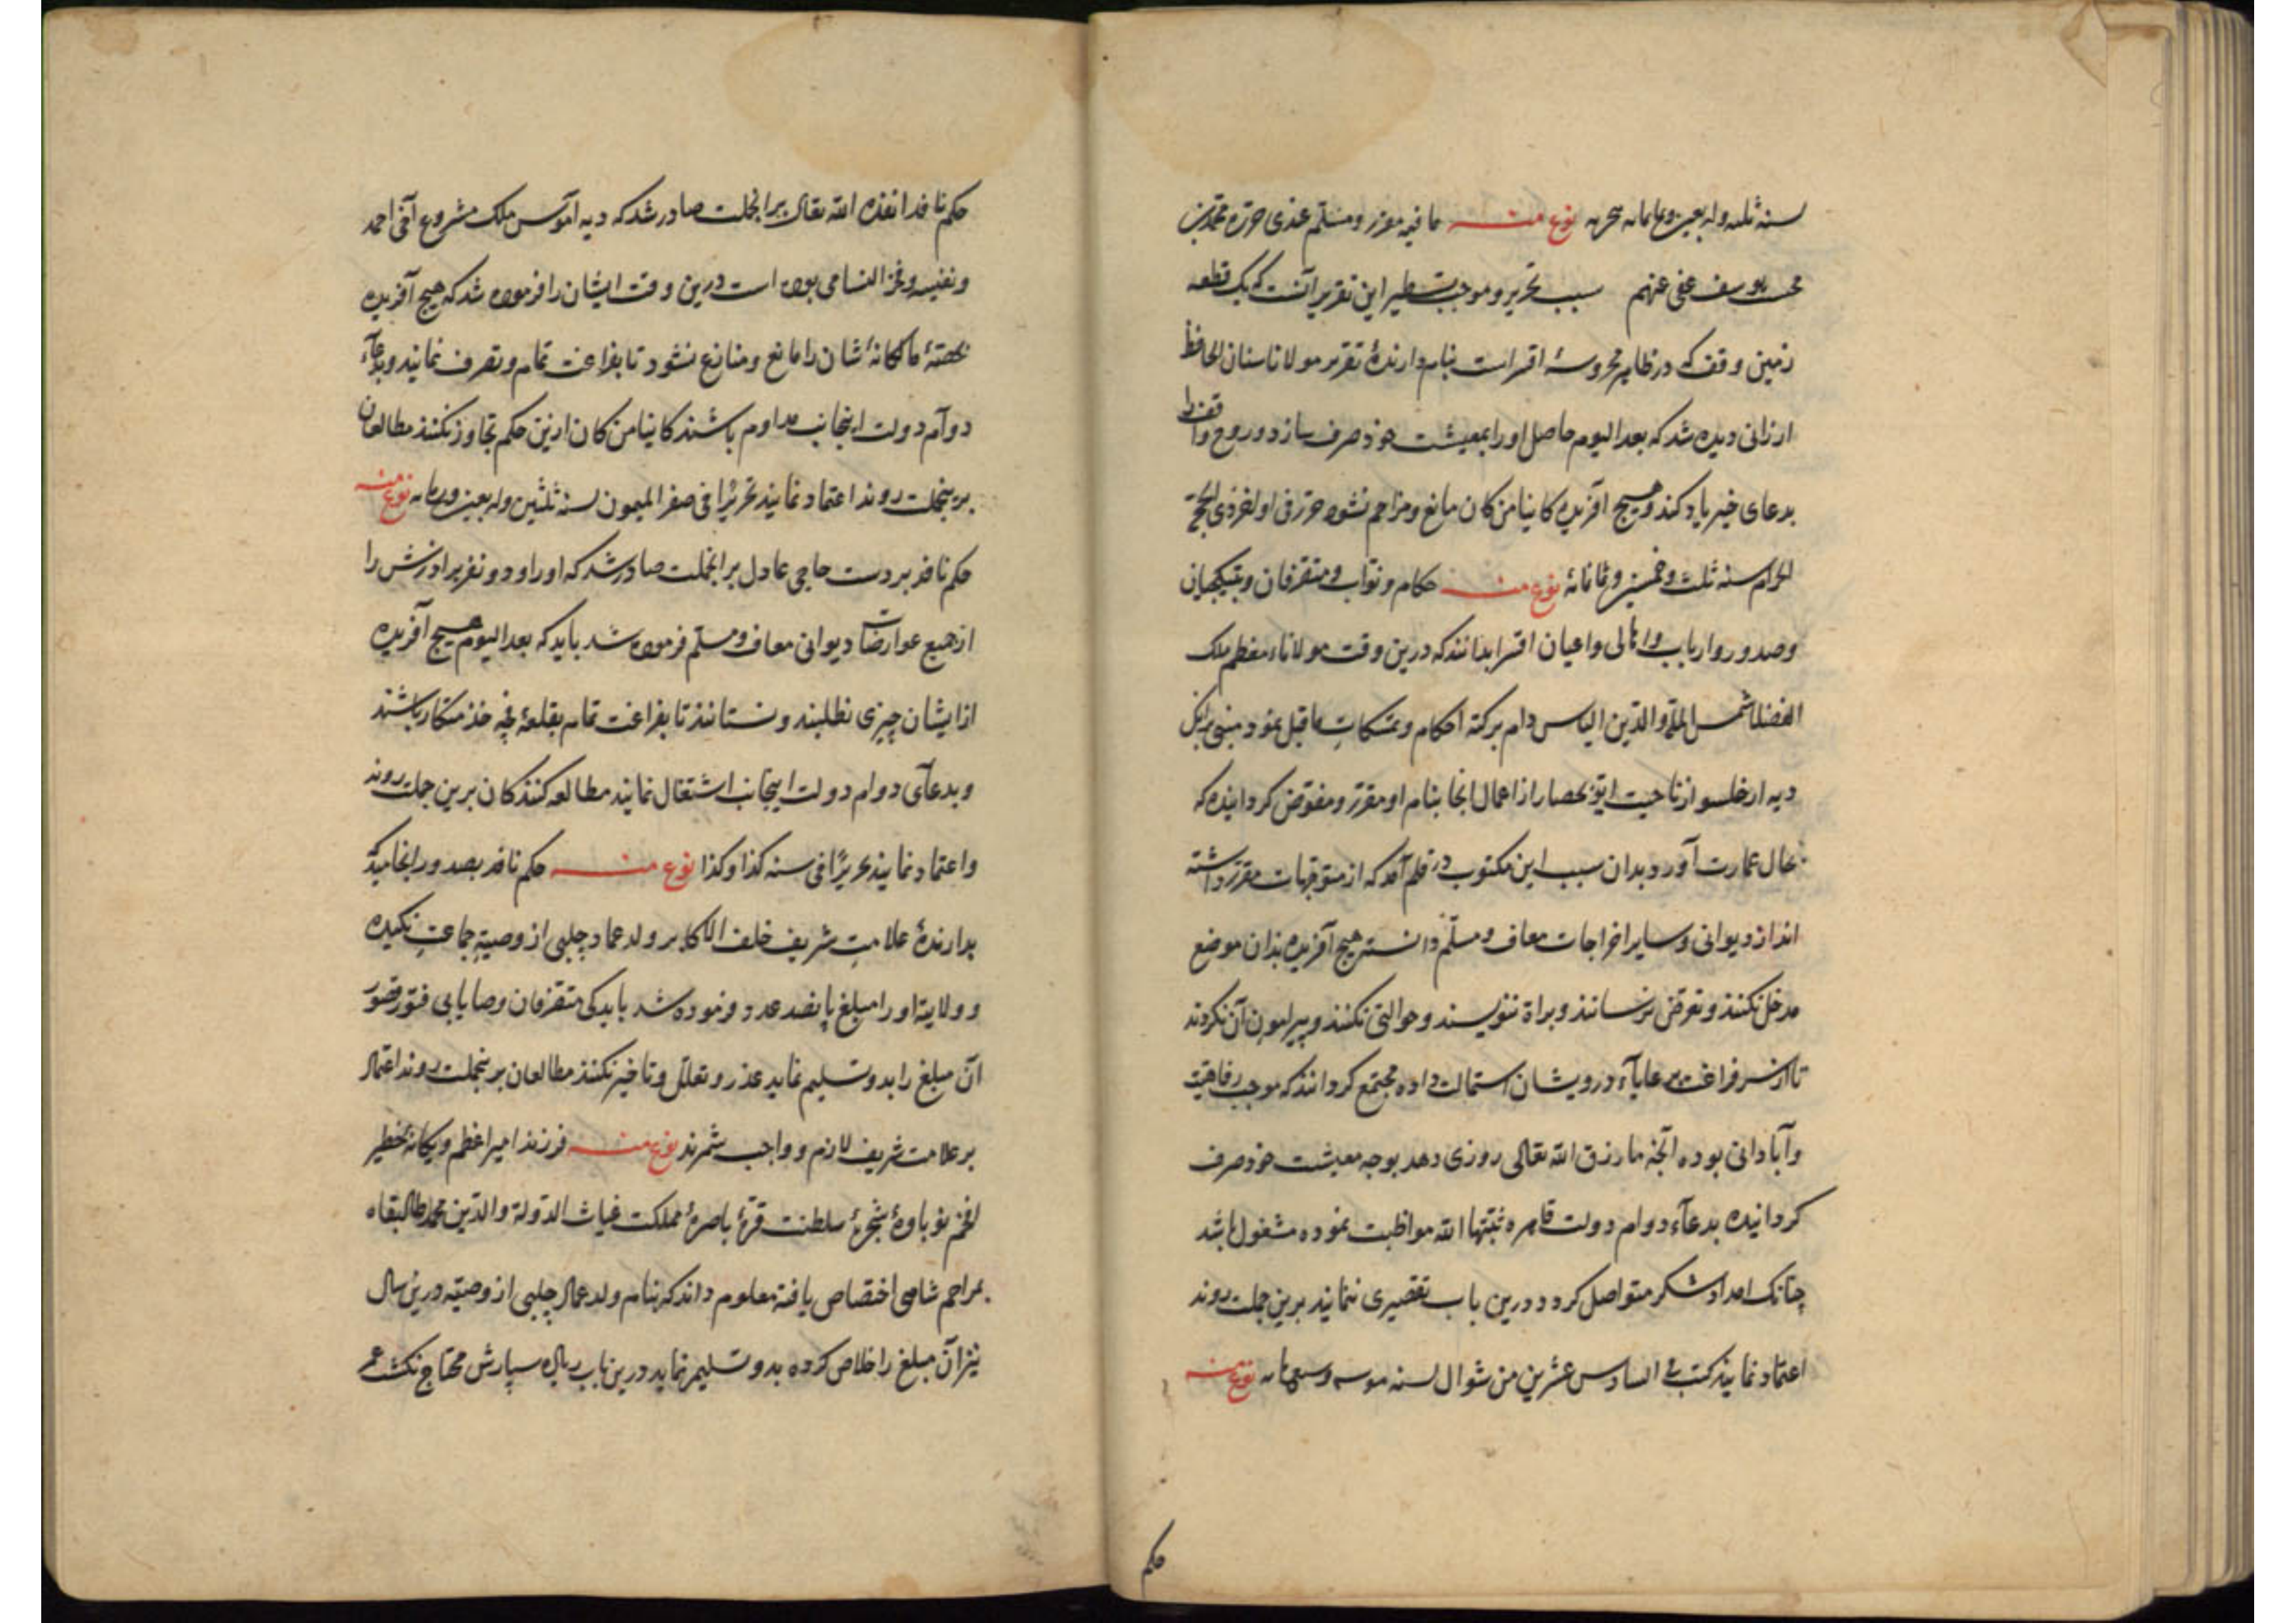 سنه ثلثه واربعین وثمانمایه هجریه نوع منه ما فیه مقرر ومسلم عندی حرره محمد بن
محمد یوسف عفی عنهم سبب تحریر وموجب تسطیر این تقریر آنست که یک قطعه
زمین وقف که در ظاهر محروسهٔ اقسراست بنام دارندهٔ تقریر مولانا سنان الحافظ
ارزانی دیده شد که بعد الیوم حاصل اورا بمعیشت خود صرف سازد وروح واقف را
بدعای خیر یاد کند وهیچ آفریده کاینا من کان مانع ومزاحم نشود حرر فی اواخر ذی الحجة
الحرام سنه ثلث وخمسین وثمانمائهٔ نوع منه حکام ونواب ومتصرفان وبتیکجیان
وصدور وارباب واهالی واعیان اقسرا بدانند که درین وقت مولاناء معظم ملک
الفضلا شمس الملة والدین الیاس دام برکته احکام وتمسکات ما قبل نمود مبنی برانک
دیه از ناحیت ایوبحصار از اعمال انجا بنام او مقرر ومفوض کردانیده که
بحال عمارت آورد بدان سبب این مکتوب در قلم آمد که از متوجهات مقرر داشته
اند از دیوانی وسایر اخراجات معاف ومسلم دانسته هیچ آفریده بذان موضع
مدخل نکنند وتعرض نرسانند وبراة ننویسند وحوالتی نکنند وپیرامون آن نکردند
تا از سر فراغت رعایاء درویشان استمالت داده مجتمع کردانند که موجب رفاهیت
وآبادانی بوده آنچه ما رزق الله تعالی روزی دهد بوجه معیشت خود صرف
کردانیده بدعآء دوام دولت قاهره ثبتها الله مواظبت نموده مشغول باشد
چنانک امداد شکر متواصل کردد درین باب تقصیری ننمایند برین جملت روند
اعتماد نمایند کتب فی السادس عشرین من شوال لسنه وسبعمایه نوع منه
حکم
حکم نافد انفذه الله تعالی برانجملت صادر شد که دیه ملک مشروع آخی احمد
ونفیسه وفخر النسا می بوده است درین وقت ایشان را فرموده شد که هیچ آفریده
بحصهٔ مالکانهٔ شان را مانع ومنازع نشود تا بفراغت تمام وتصرف نمایند وبدعآء
دوآم دولت اینجانب مداوم باشند کاینا من کان ازین حکم تجاوز نکنند مطالعان
برینجملت روند اعتماد نمایند تحریرًا فی صفر المیمون لسنه ثلثین واربعین نوع منه
حکم نافد بر دست حاجی عادل برانجملت صادر شد که اورا ودو نفر برادرش را
از جمیع عوارضات دیوانی معاف ومسلم فرموده شد باید که بعد الیوم هیچ آفریده
از ایشان چیزی نطلبند ونستانند تا بفراغت تمام بقلعهٔ خدمتکار باشند
وبدعآی دوام دولت اینجانب اشتغال نمایند مطالعه کنندکان برین جملت روند
واعتماد نمایند تحریرًا فی سنه کذا وکذا نوع منه حکم نافد بصدور انجامید که
بدارندهٔ علامتِ شریف خلف الاکابر ولد عماد چلبی از وصیة جماعتِ نکیده
وولایته اورا مبلغ پانصد عدد فرموده شد باید که متصرفان وصایا بی فتور وقصور
آن مبلغ را بدو تسلیم نماید عذر وتعلّل وتاخیر نکنند مطالعان برینجملت روند اعتماد
بر علامت شریف لازم وواجب شمرند نوع منه فرزند امیر اعظم ویکانهٔ خطیر
افخم نوباوهٔ شجرهٔ سلطنت قرهٔ باصرهٔ مملکت غیاث الدوله والدین محمد طال بقاه
بمراحم شاهی اختصاص یافته معلوم داند که بنام ولد عماد چلبی از وصیّه درین سال
نیز آن مبلغ را خلاص کرده بدو تسلیم نماید درین باب بسپارش محتاج نکشت عمر